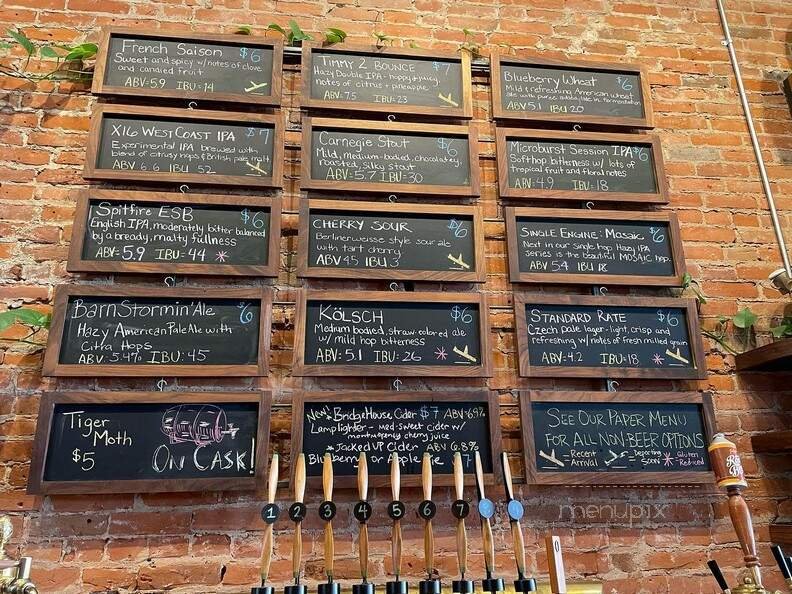 French Saison $6
Sweet and spicy w/notes of clove
and candied fruit
ABV=5.9 IBU=14
TIMMY 2 BOUNCE $7
Hazy Double IPA - hoppy & juicy
notes of citrus + pineapple
ABV=7.5 IBU=23
Blueberry Wheat $6
Mild & refreshing American wheat
ale with puree added late in fermentation
ABV 5.1 IBU 20
X16 WEST COAST IPA $7
Experimental IPA brewed with
blend of citrusy hops & British pale malt
ABV 6.6 IBU 52
Carnegie Stout $6
Mild, medium-bodied, chocolatey,
roasted, silky stout
ABV=5.7 IBU=30
Microburst Session IPA $6
Soft hop bitterness w/ lots of
tropical fruit and floral notes
ABV=4.9 IBU=18
Spitfire ESB $6
English IPA, moderately bitter balanced
by a bready, malty fullness
ABV=5.9 IBU=44 *
CHERRY SOUR $6
Berlinerweisse style sour ale
with tart cherry
ABV 4.5 IBU 3
SINGLE ENGINE: Mosaic $6
Next in our single hop Hazy IPA
series is the beautiful MOSAIC hop.
ABV 5.4 IBU
BARNSTORMIN' ALE $6
HAZY AMERICAN PALE ALE WITH
CITRA HOPS
ABV: 5.4% IBU: 45
KÖLSCH $6
Medium bodied, straw-colored ale
w/ mild hop bitterness
ABV=5.1 IBU=26 *
STANDARD RATE $6
Czech pale lager-light, crisp and
refreshing w/ notes of fresh milled grain
ABV=4.2 IBU=18 *
Tiger
Moth
$5
ON CASK!
New! BridgeHouse Cider $7 ABV 6.9%
Lamplighter - med-sweet cider w/
montmorency cherry juice
*Jacked Up Cider ABV 6.8%
Blueberry or Apple Pie
SEE OUR PAPER MENU
FOR ALL NON-BEER OPTIONS
=Recent Arrival =Departing Soon * =Gluten Reduced
1 2 3 4 5 6 7 8 9
menupix